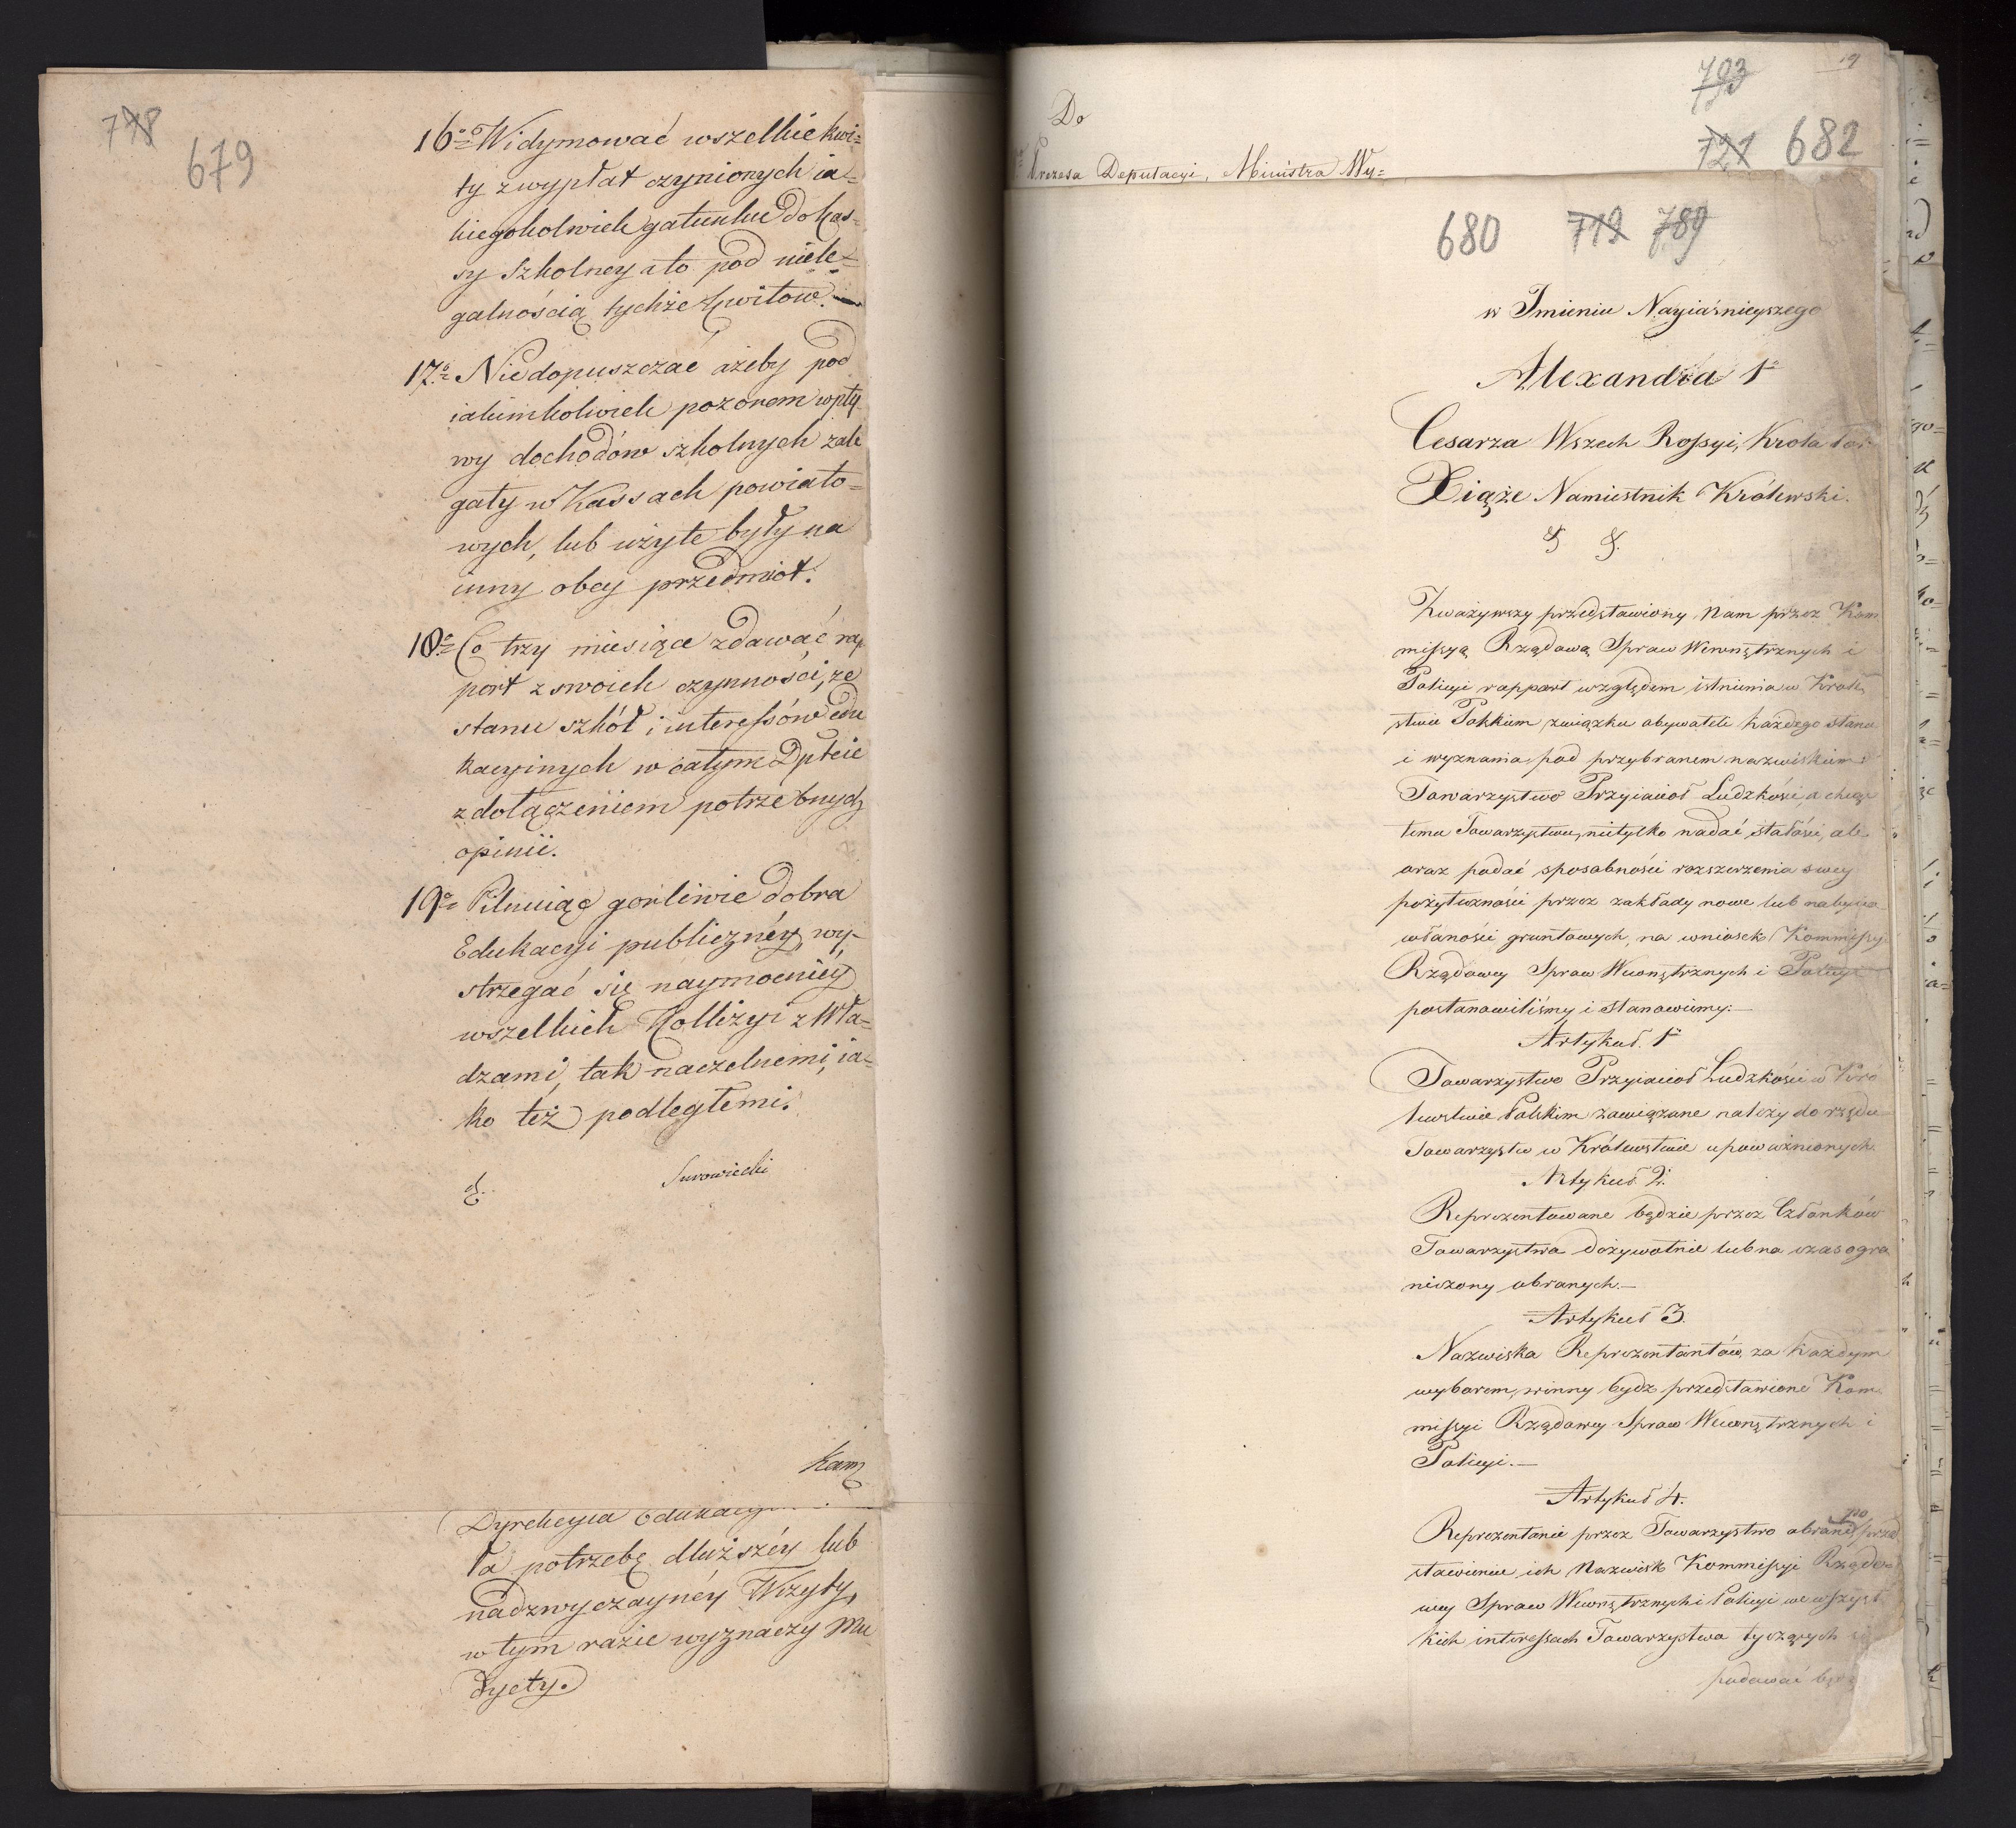 778
679
16o Widymować wszelkie kwi=
ty z wypłat czynionych ia=
kiegokolwiek gatunku do Kas=
sy Szkolney a to pod niele=
galnością tychże kwitow.
17o Niedopuszczać ażeby pod
iakimkolwiek pozorem wpły
wy dochodów szkolnych zale
gały w Kassach powiato=
wych, lub użyte były na
inny obcy przedmiot.
18o Co trzy miesiące zdawać rap
port z swoich czynności, ze
stanu szkół i interessów edu
kacyinych w całym Dptcie
z dołączeniem potrzebnych
opinii.
19o Pilnuiąc gorliwie dobra
Edukacyi publicznéy, wy=
strzegać się naymocniéy
wszelkich Kollizyi z Wła=
dzami, tak naczelnemi, ia=
ko też podległemi.
Surowiecki
Kam
Dyrekcyia Edukacyi
ła potrzebę dłuższéy lub
nadzwyczaynéy Wizyty,
w tym razie wyznaczy mu
dyety.
19
793
721 682
Do
Prezesa Deputacyi, Ministra Wy=
680 719 789
w Imieniu Nayiaśnieyszego
Alexandra 1o
Cesarza Wszech Rossyi, Krola Pol
Xiąże Namiestnik Królewski.
& &.
Zważywszy przedstawiony Nam przez Kom
missyą Rządową Spraw Wewnętrznych i
Policyi rapport względem istnienia w Krole
stwie Polskim związku obywateli każdego stanu
i wyznania pod przybranem nazwiskiem
Towarzystwo Przyiacioł Ludzkości, a chcąc
temu Towarzystwu, nietylko nadać stałość, ale
oraz podać sposobności rozszerzenia swey
pożyteczności przez zakłady nowe lub nabycia
własności gruntowych, na wniosek Kommissyi
Rządowey Spraw Wewnętrznych i Policyi
postanowiliśmy i stanowimy:—
Artykuł 1o
Towarzystwo Przyiacioł Ludzkości w Kró
lewstwie Polskim zawiązane należy do rzędu
Towarzystw w Królewstwie upoważnionych.
Artykuł 2.
Reprezentowane będzie przez Członków
Towarzystwa dożywotnie lub na czas ogra
niczony obranych.—
Artykuł 3.
Nazwiska Reprezentantów, za każdym
wyborem, winny bydz przedstawione Kom
missyi Rządowey Spraw Wewnętrznych i
Policyi.—
Artykuł 4.
po
Reprezentanci przez Towarzystwo obrani przed
stawieniu ich Nazwisk Kommissyi Rządo
wey Spraw Wewnętrznych i Policyi we wszyst
kich interessach Towarzystwa tyczących się
podawać będą